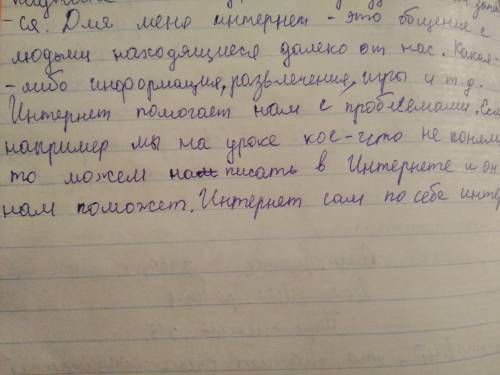 -ся. Для меня интернет - это общение с
людьми находящиеся далеко от нас. Какая-
-либо информация, развлечения, игры и т.д.
Интернет помогает нам с проблемами. Если
например мы на уроке кое-что не поняли
то можем писать в Интернете и он
нам поможет. Интернет сам по себе интер